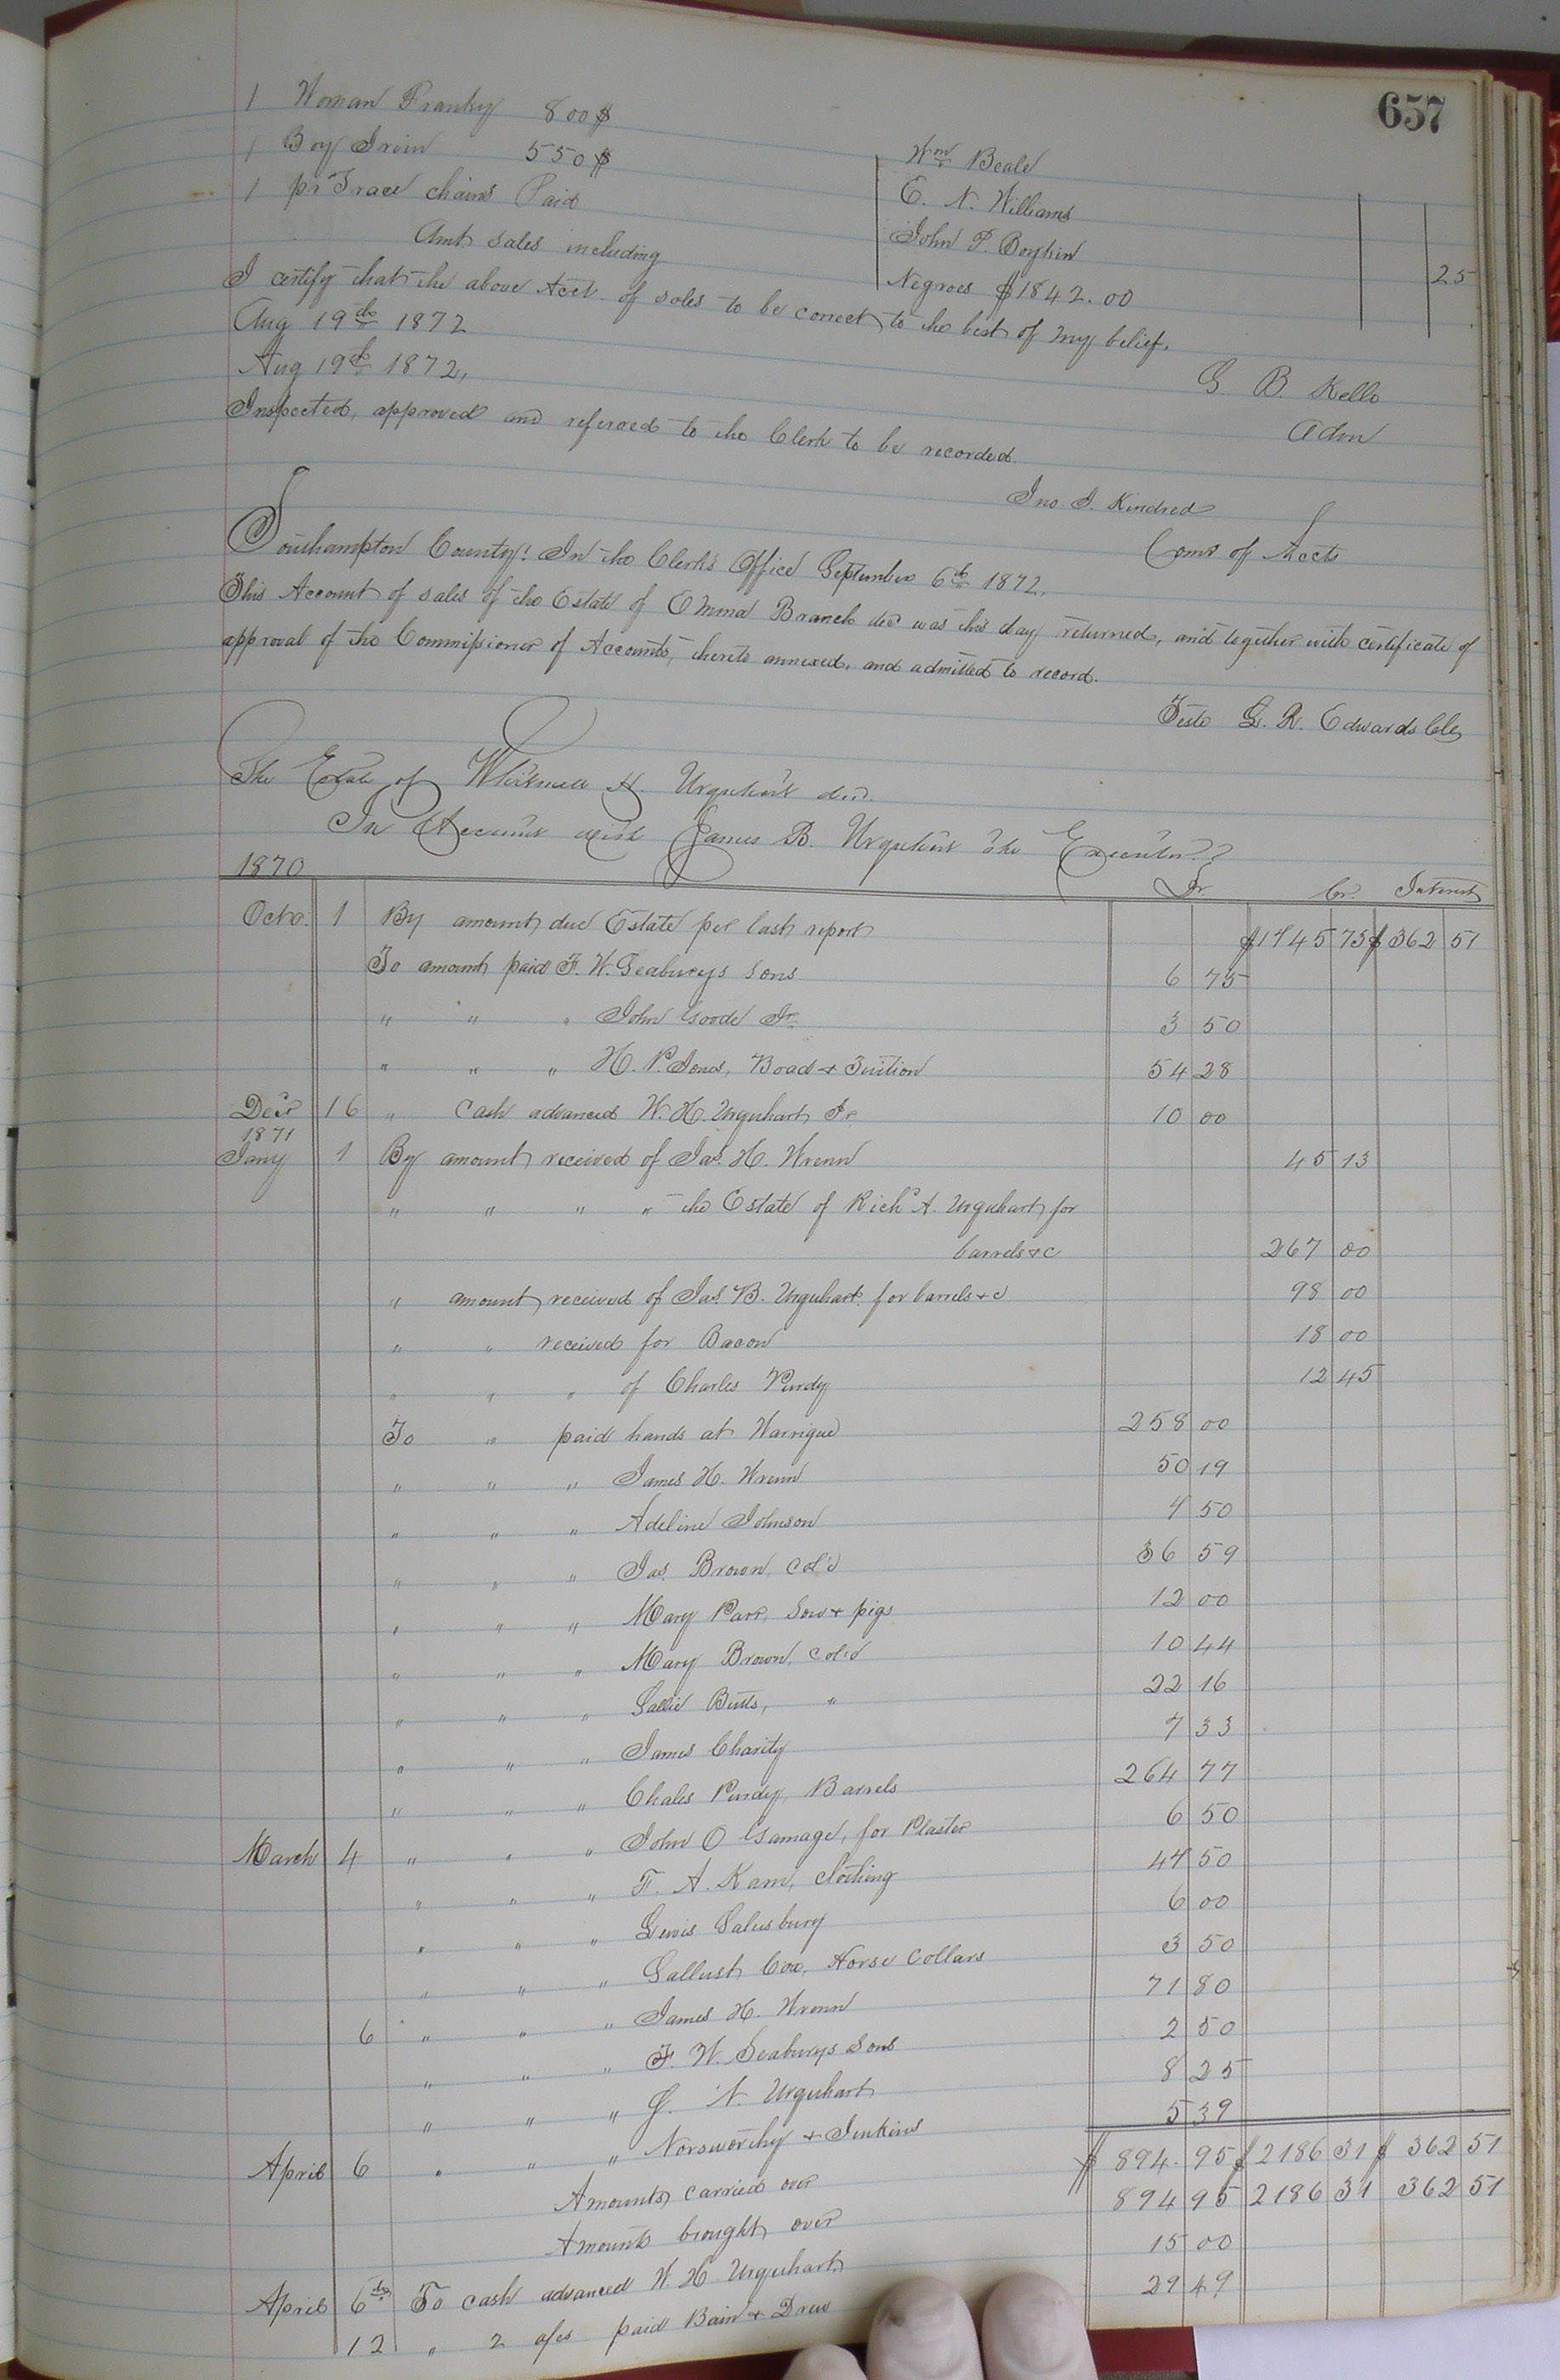 657
1 Woman Franky 800$ Wm Beale
1 Boy Irvin 550$ E. N. Williams
1 pr Trace chains Paid John P. Boykin 25
Amt sales including Negroes $1842.00
I certify that the above Acct. of sales to be correct to the best of my belief.
Aug 19th 1872 G. B. Kello
Adm
Aug 19th 1872,
Inspected, approved and referred to the Clerk to be recorded
Jno. J. Kindred
Comr of Accts
Southampton County: In the Clerk's Office September 6th 1872.
This Account of sales of the Estate of Emma Branch decd was this day returned, and together with certificate of
approval of the Commissioner of Accounts, thereto annexed, and admitted to record.
Teste L. R. Edwards Clk
The Estate of Whitmell H. Urquhart decd.
In Account with James B. Urquhart the Executor
1870 Dr. Cr. Interest
Octo. 1 By amount due Estate per last report $1745 73 $362 51
To amount paid F. W. Seaburys Sons 6 75
" " " John Goode Jr. 3 50
" " " H. P. Jones, Boad & Tuition 54 28
Decr 16 " Cash advanced W. H. Urquhart Jr. 10 00
1871
Jany 1 By amount received of Jas. H. Wrenn 45 13
" " " " the Estate of Richd A. Urquhart for
barrels &c 267 00
" amount received of Jas. B. Urquhart for barrels &c 98 00
" " received for Bacon 18 00
" " " of Charles Purdy 12 45
To " paid hands at Warrique 258 00
" " " James H. Wrenn 50 19
" " " Adeline Johnson 7 50
" " " Jas. Brown, Col'd 36 59
" " " Mary Parr, Sow & pigs 12 00
" " " Mary Brown, Col'd 10 44
" " " Sallie Butts, " 22 16
" " " James Charity 7 33
" " " Chales Purdy, Barrels 264 77
March 4 " " " John O Gamage, for Plaster 6 50
" " " F. A. Kam, Clothing 47 50
" " " Lewis Salusbury 6 00
" " " Sallust Cox, Horse Collars 3 50
6 " " " James H. Wrenn 71 80
" " " F. W. Seaburys Sons 2 50
" " " G. N. Urquhart 8 25
April 6 " " " Norsworthy & Jenkins 5 39
Amounts carried over $894.95 $2186 31 $362 51
Amounts brought over 894 95 2186 31 362 51
April 6th To cash advanced W. H Urquhart 15 00
12 " 2 a/cs paid Bain & Drew 29 49